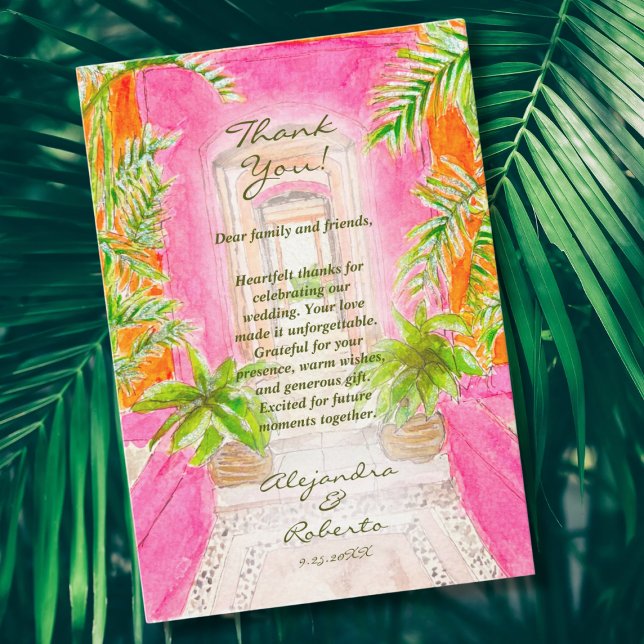 Thank
You!
Dear family and friends,
Heartfelt thanks for
celebrating our
wedding. Your love
made it unforgettable.
Grateful for your
presence, warm wishes,
and generous gift.
Excited for future
moments together.
Alejandra
&
Roberto
9.25.20XX